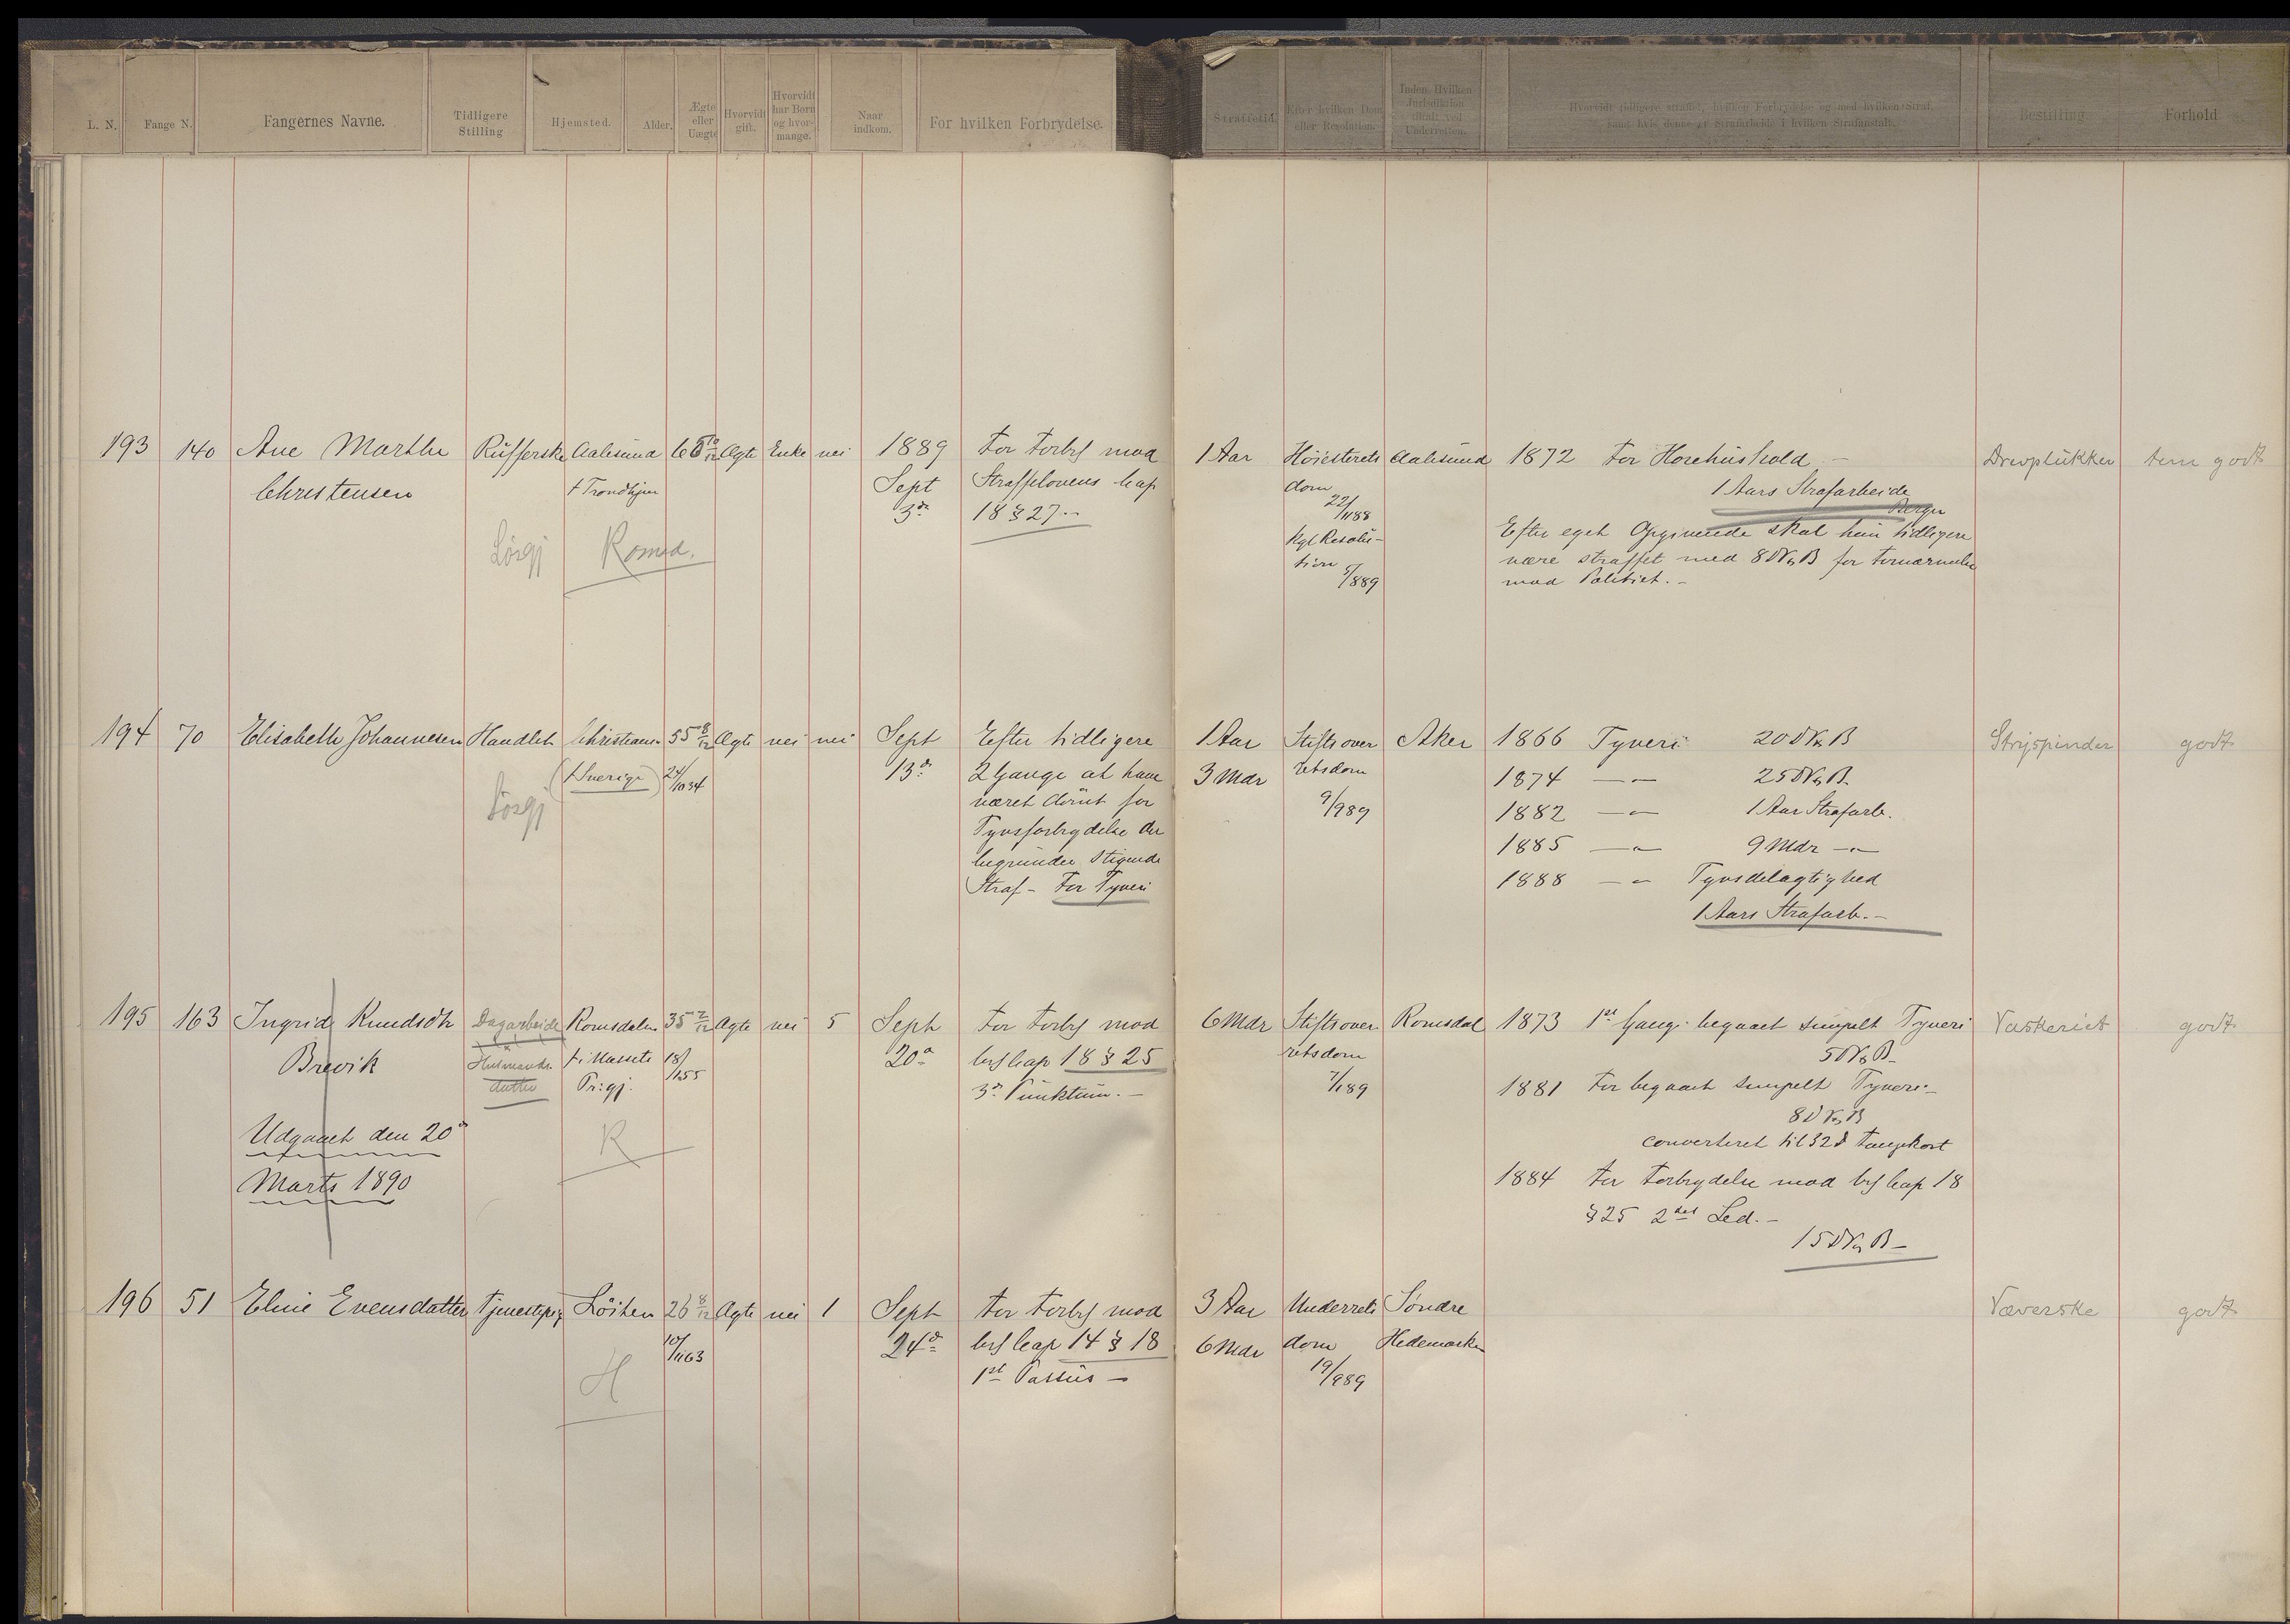 L. N. Fange N. Fangernes Navne. Tidligere Stilling Hjemsted. Alder. Ægte eller Uægte Hvorvidt gift. Hvorvidt har Børn og hvormange. Naar indkom. For hvilken Forbrydelse. Straffetid. Efter hvilken Dom eller Resolution. Inden Hvilken Jurisdiktion tiltalt ved Underretten. Hvorvidt tidligere straffet, hvilken Forbrydelse og med hvilken Straf, samt hvis denne er Strafarbeide i hvilken Strafanstalt. Bestilling Forhold
193 140 Ane Marthe Rufferske Aalesund Ægte Enke nei 1889 For Forbr mod 1 Aar Høiesterets Aalesund 1872 For Horehushold – Drevplukker godt
Christensen f Trondhjem Sept Straffelovens Cap dom 1 Aars Strafarbeide
3die 18 § 27 – 22/1188 Bergen
Sørgj Romsd. Kgl Resolu- Efter eget Opgivende skal hun tidligere
tion være straffet med 8 D V & B for
5/889 mod Politiet. –
194 70 Elisabeth Johannesen Handlet Christiania 55 8/12 Ægte nei nei Sept Efter tidligere 1 Aar Stiftsover Aker 1866 Tyveri 20 D V & B Strijspinder godt
(f Sverige) 24/1034 13de 2 Gange at have 3 Mdr retsdom 1874 — 25 D V & B
Sørgj været dömt for 9/989 1882 — 1 Aar Strafarb.
Tyvsforbrydelse der 1885 — 9 Mdr —
begrunder stigende 1888 — Tyvsdelagtighed
Straf – For Tyveri 1 Aars Strafarb. –
195 163 Ingrid Knudsdtr Dagarbeide Romsdalen 35 2/12 Ægte nei 5 Sept For Forbr mod 6 Mdr Stiftsover Romsdal 1873 1ste Gang begaaet simpelt Tyveri Vaskeriet godt
Brevik Husmands- 18/155 20de Crl Cap 18 § 25 retsdom 5 D V & B –
datter 3de Punktum. – 7/189 1881 For begaaet simpelt Tyveri –
Udgaaet den 20de 8 D V & B
R converteret til 32 d Fangekost
Marts 1890 1884 For Forbrydelse mod Crl Cap 18
§ 25 2det Led. –
15 D V & B –
196 51 Eline Evensdatter Tjenestepig Löiten 26 8/12 Ægte nei 1 Sept For Forbr mod 3 Aar Underrets Söndre Væverske godt
10/1163 24de Crl Cap 14 § 18 6 Mdr dom Hedemarken
H 1ste Passus – 19/989